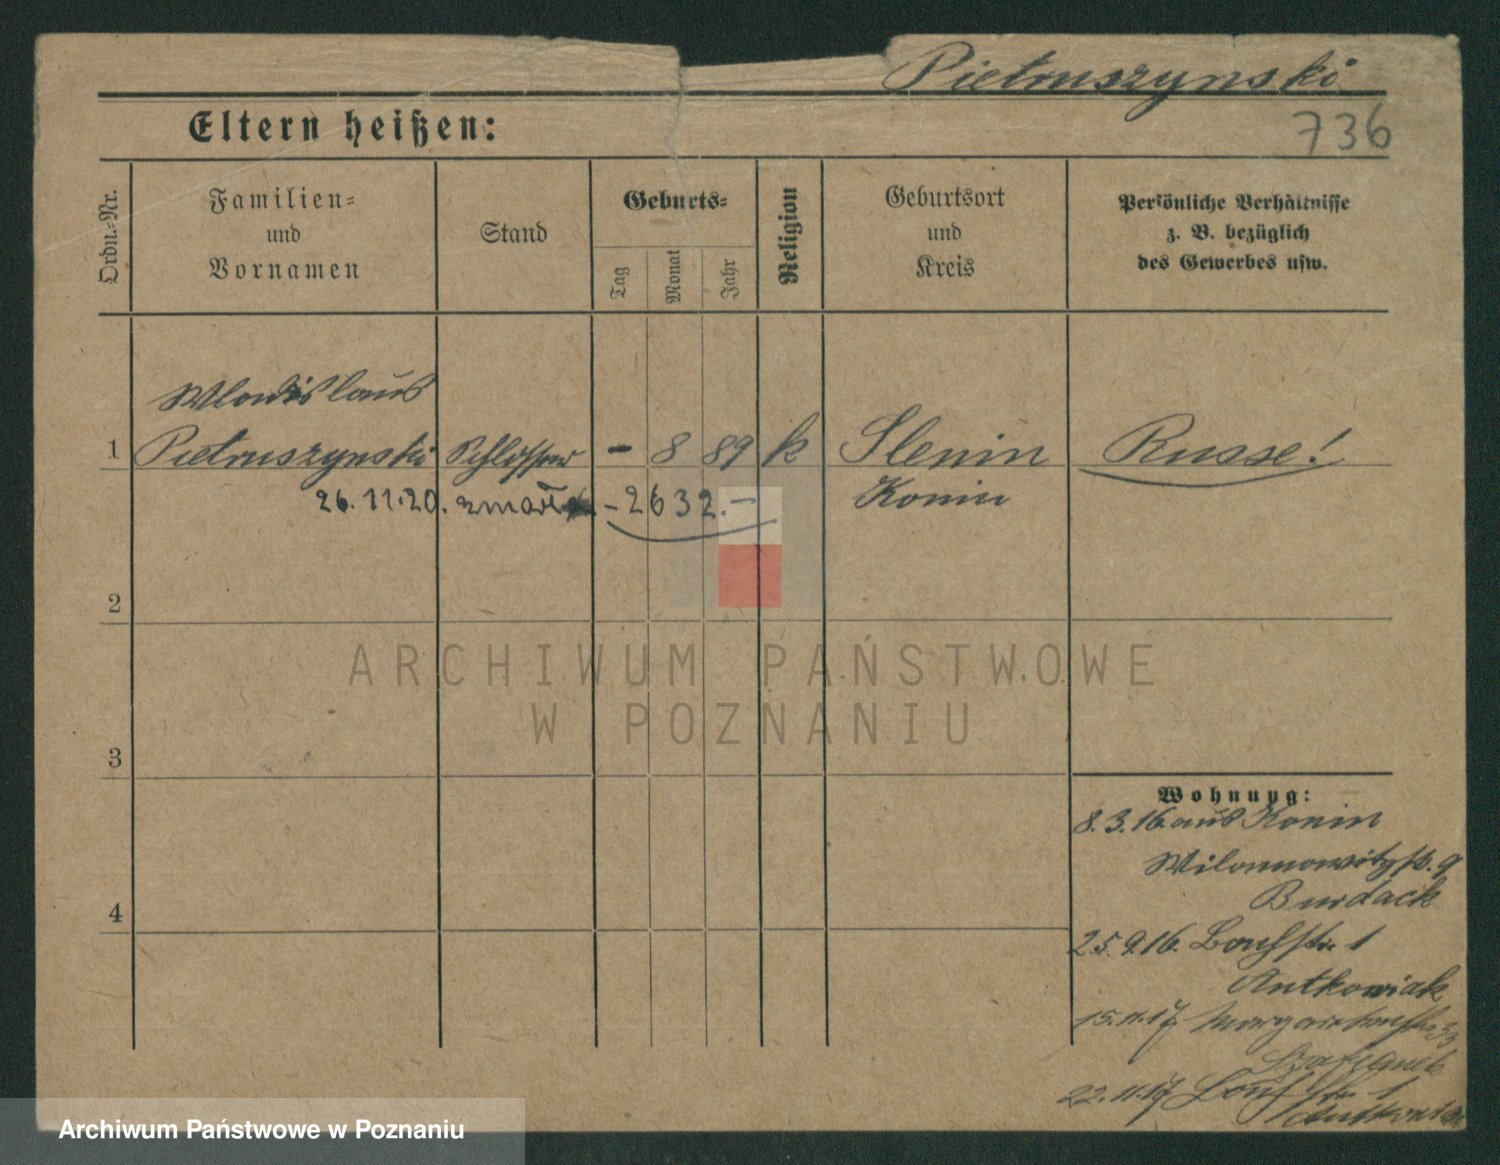 Pietruszynski
Eltern heißen:
736
Ordn.-Nr.
Familien-
und
Vornamen
Stand
Geburts-
Tag
Monat
Jahr
Religion
Geburtsort
und
Kreis
Persönliche Verhältnisse
z. B. bezüglich
des Gewerbes usw.
Wladislaus
1 Pietruszynski Schlosser - 8 89 k Slenin Russe!
26.11.20. zmarł - 2632. - Konin
2
3
4
ARCHIWUM PAŃSTWOWE
W POZNANIU
Wohnung:
8.3.16. aus Konin
9
Burdack
25.9.16. 1
Antkowiak
15.11.17
22.11.17 1
Antkowiak
Archiwum Państwowe w Poznaniu